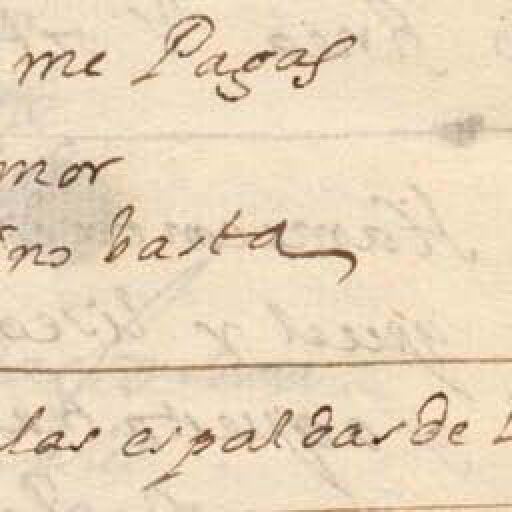 me Pagas
mor
ino basta
las espaldas de